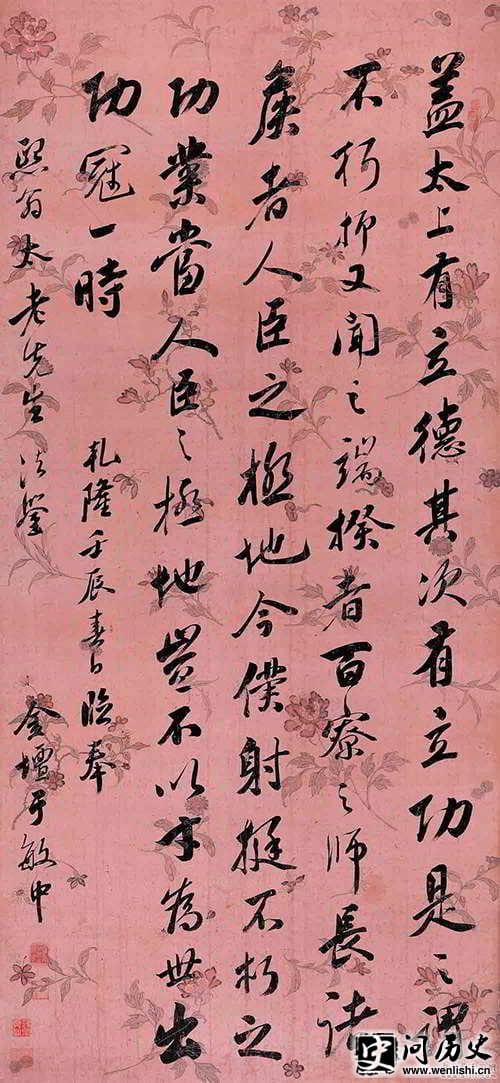 蓋太上有立德其次有立功是之謂
不朽抑又聞之端揆者百寮之師長諸
矦者人臣之極地今僕射挺不朽之
功業當人臣之極地豈不以才為世出
功冠一時
乹隆壬辰春日臨奉
熙翁太老先生法鑒
金壇于敏中
问历史
www.wenlishi.cn